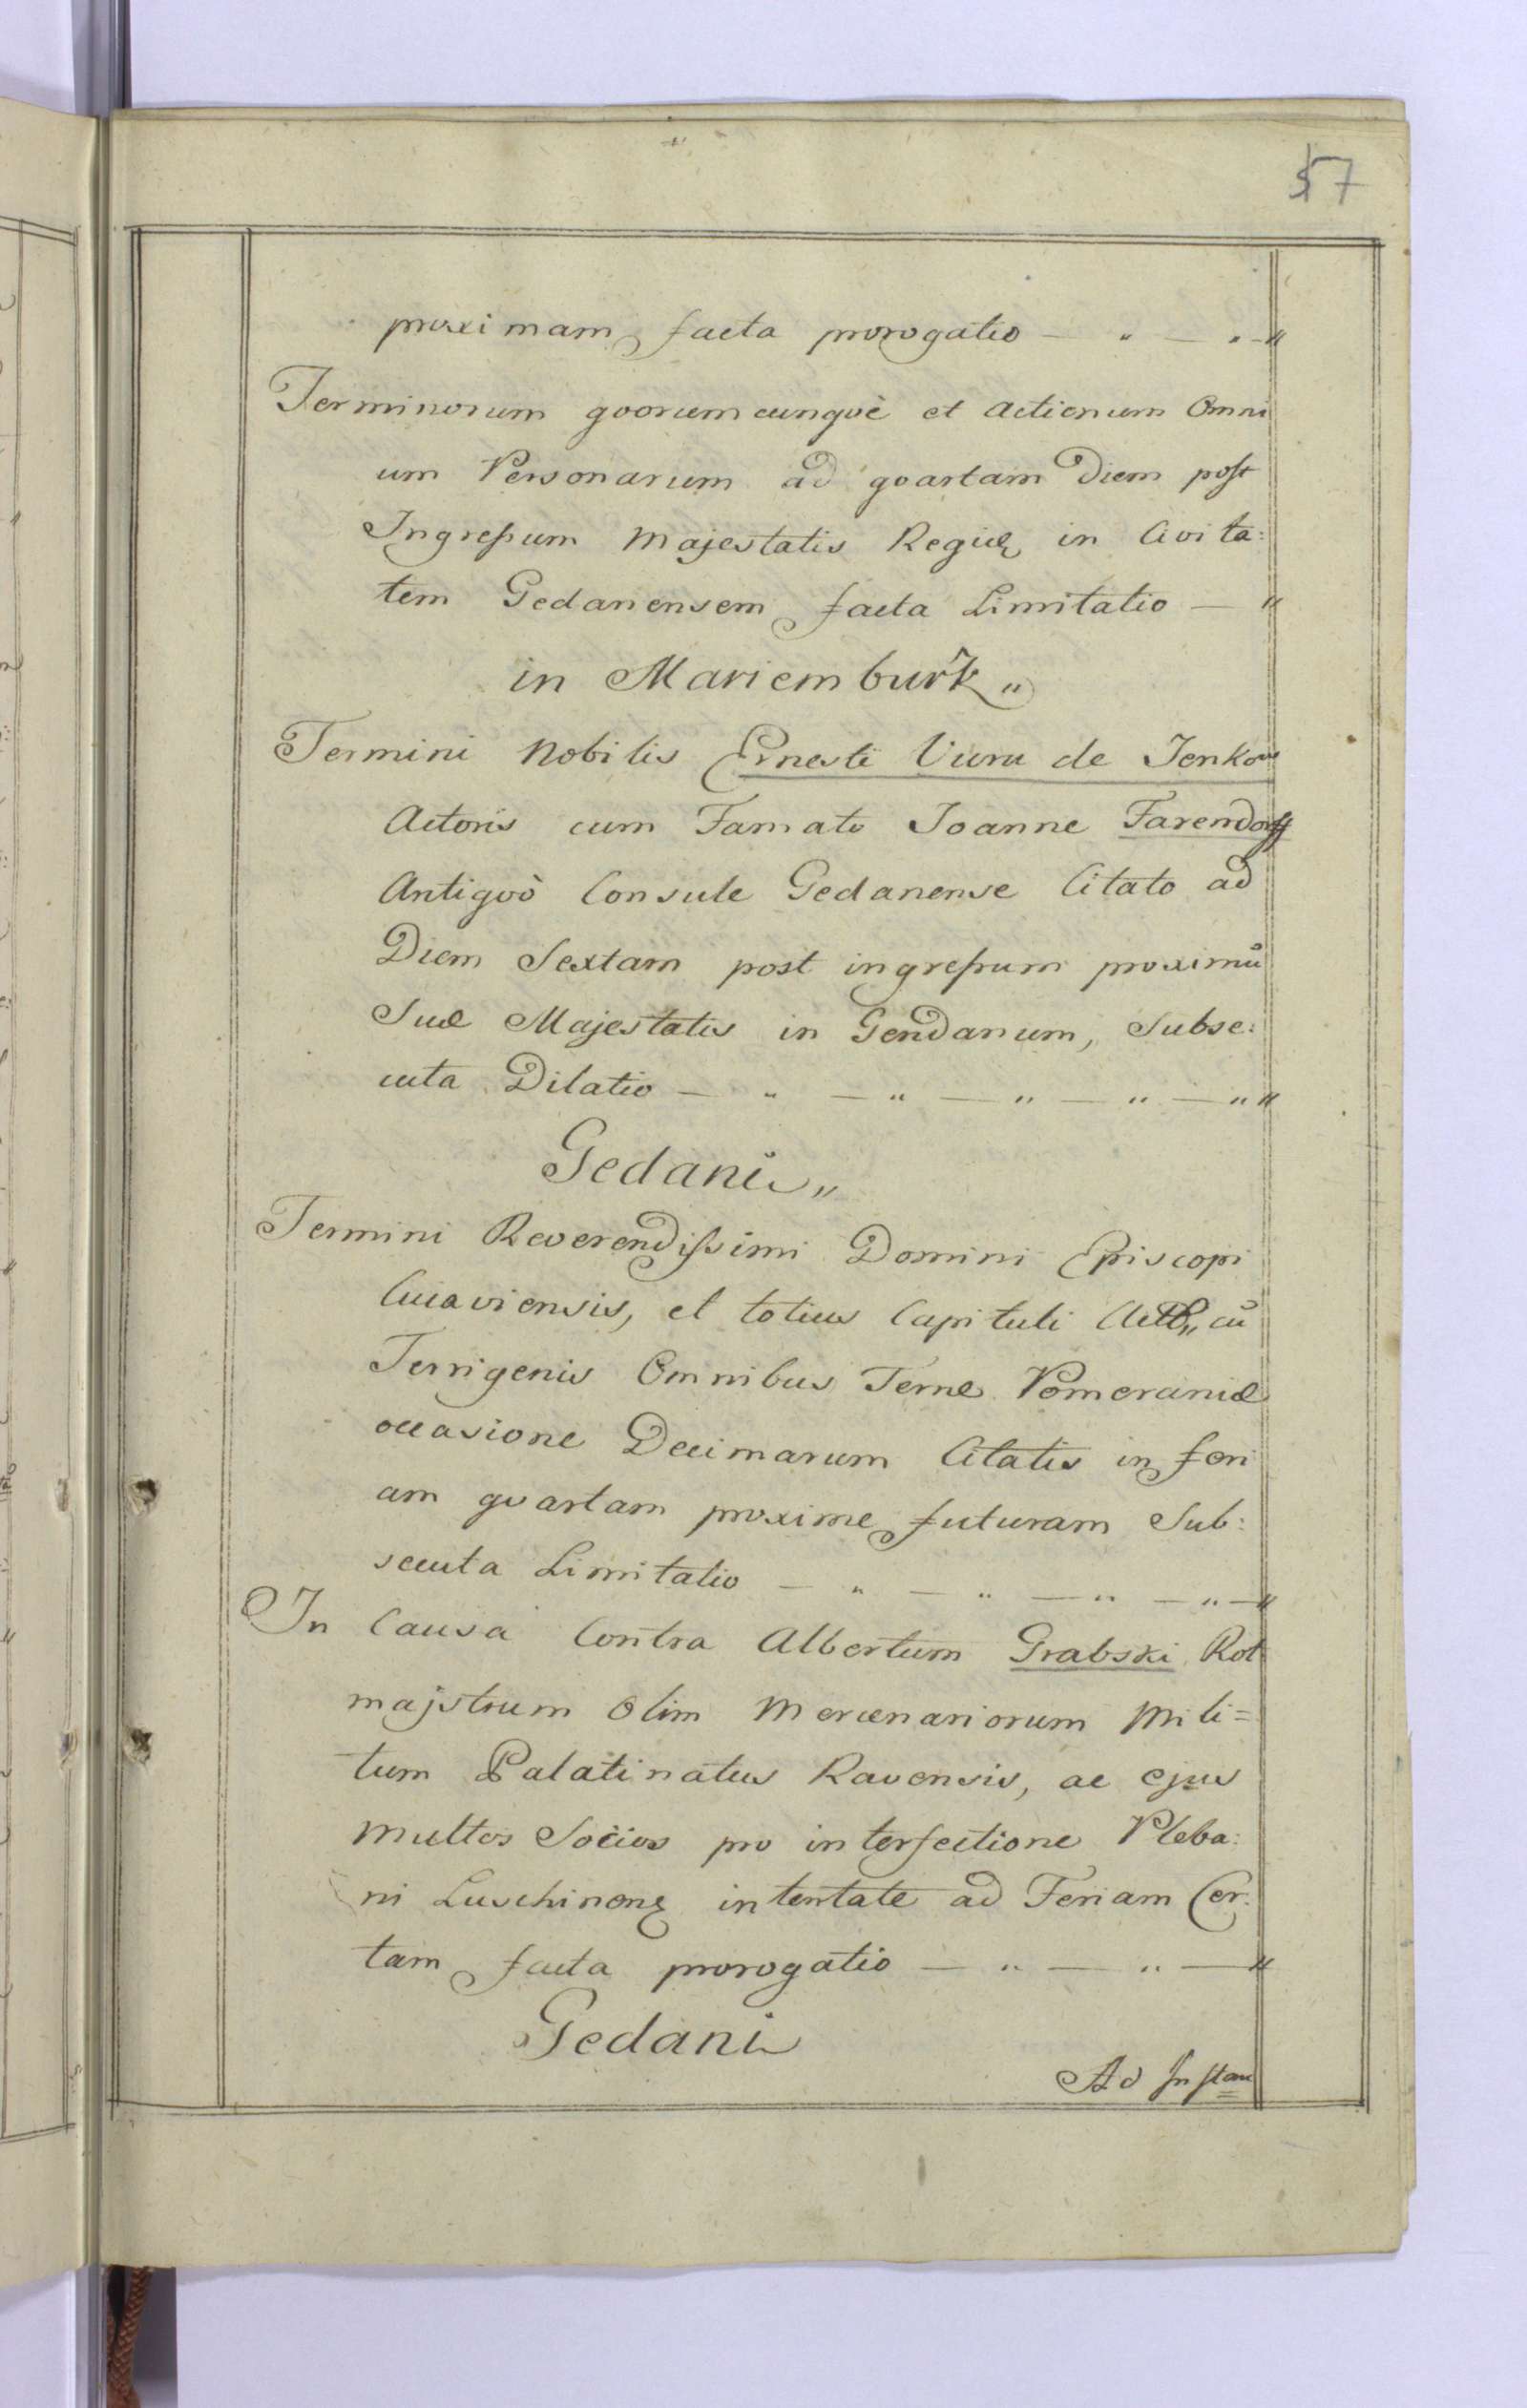 57
proximam facta prorogatio — " — " — "
Terminorum qvorumcunqvè et Actionum Omni
um Personarum ad qvartam Diem post
Ingressum Majestatis Regiæ in Civita:
tem Gedanensem facta Limitatio — "
in Mariemburk "
Termini Nobilis Ernesti Vicru de Jenkow
Actoris cum Famato Joanne Farendorff
Antiqvò Consule Gedanense Citato ad
Diem Sextam post ingressum proximū
Suæ Majestatis in Gendanum, Subse:
cuta Dilatio — " — " — " — " — " "
Gedani "
Termini Reverendissimi Domini Episcopi
Cuiaviensis, et totius Capituli cū
Terrigenis Omnibus Terræ Pomeraniæ
occasione Decimarum Citatis in feri
am qvartam proxime futuram Sub:
secuta Limitatio — " — " — " — " — "
In Causa Contra Albertum Grabski Rot
majstrum Olim Mercenariorum Mili=
tum Palatinatus Ravensis, ac ejus
Multos Socios pro interfectione Pleba:
ni Luschinen intentate ad Feriam Cer:
tam facta prorogatio — " — " — "
Gedani
Ad Instan